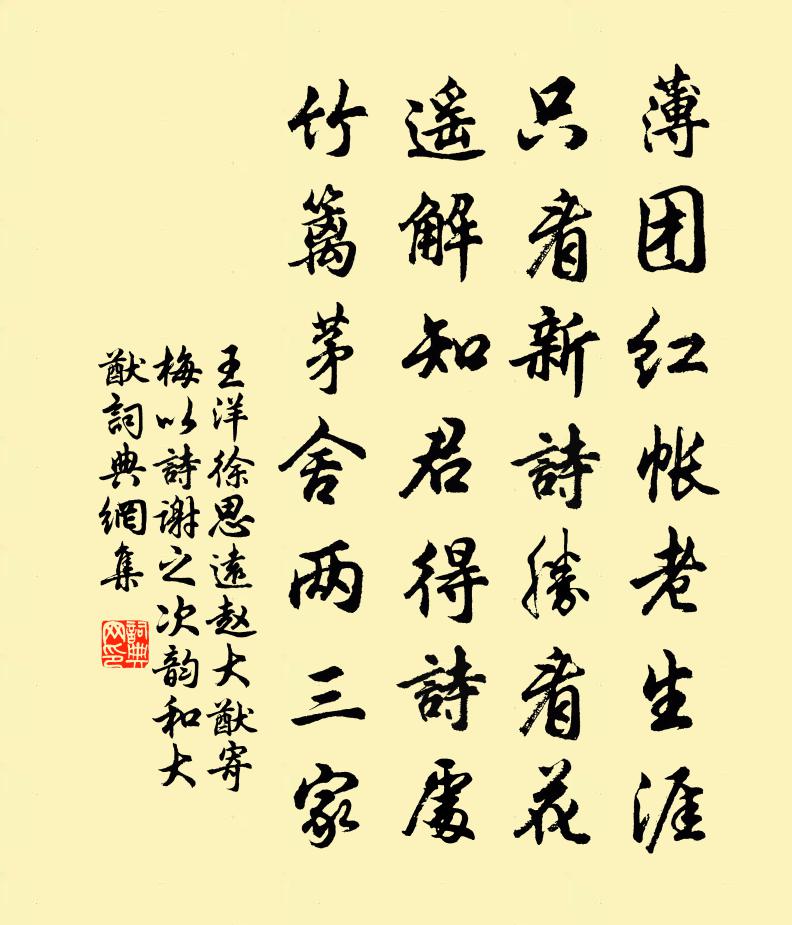 薄团红帐老生涯
只看新詩勝看花
遥解知君得詩處
竹篱茅舍两三家
王洋徐思遠赵大猷寄
梅以詩谢之次韵和大
猷詞典網集
詞典
网印